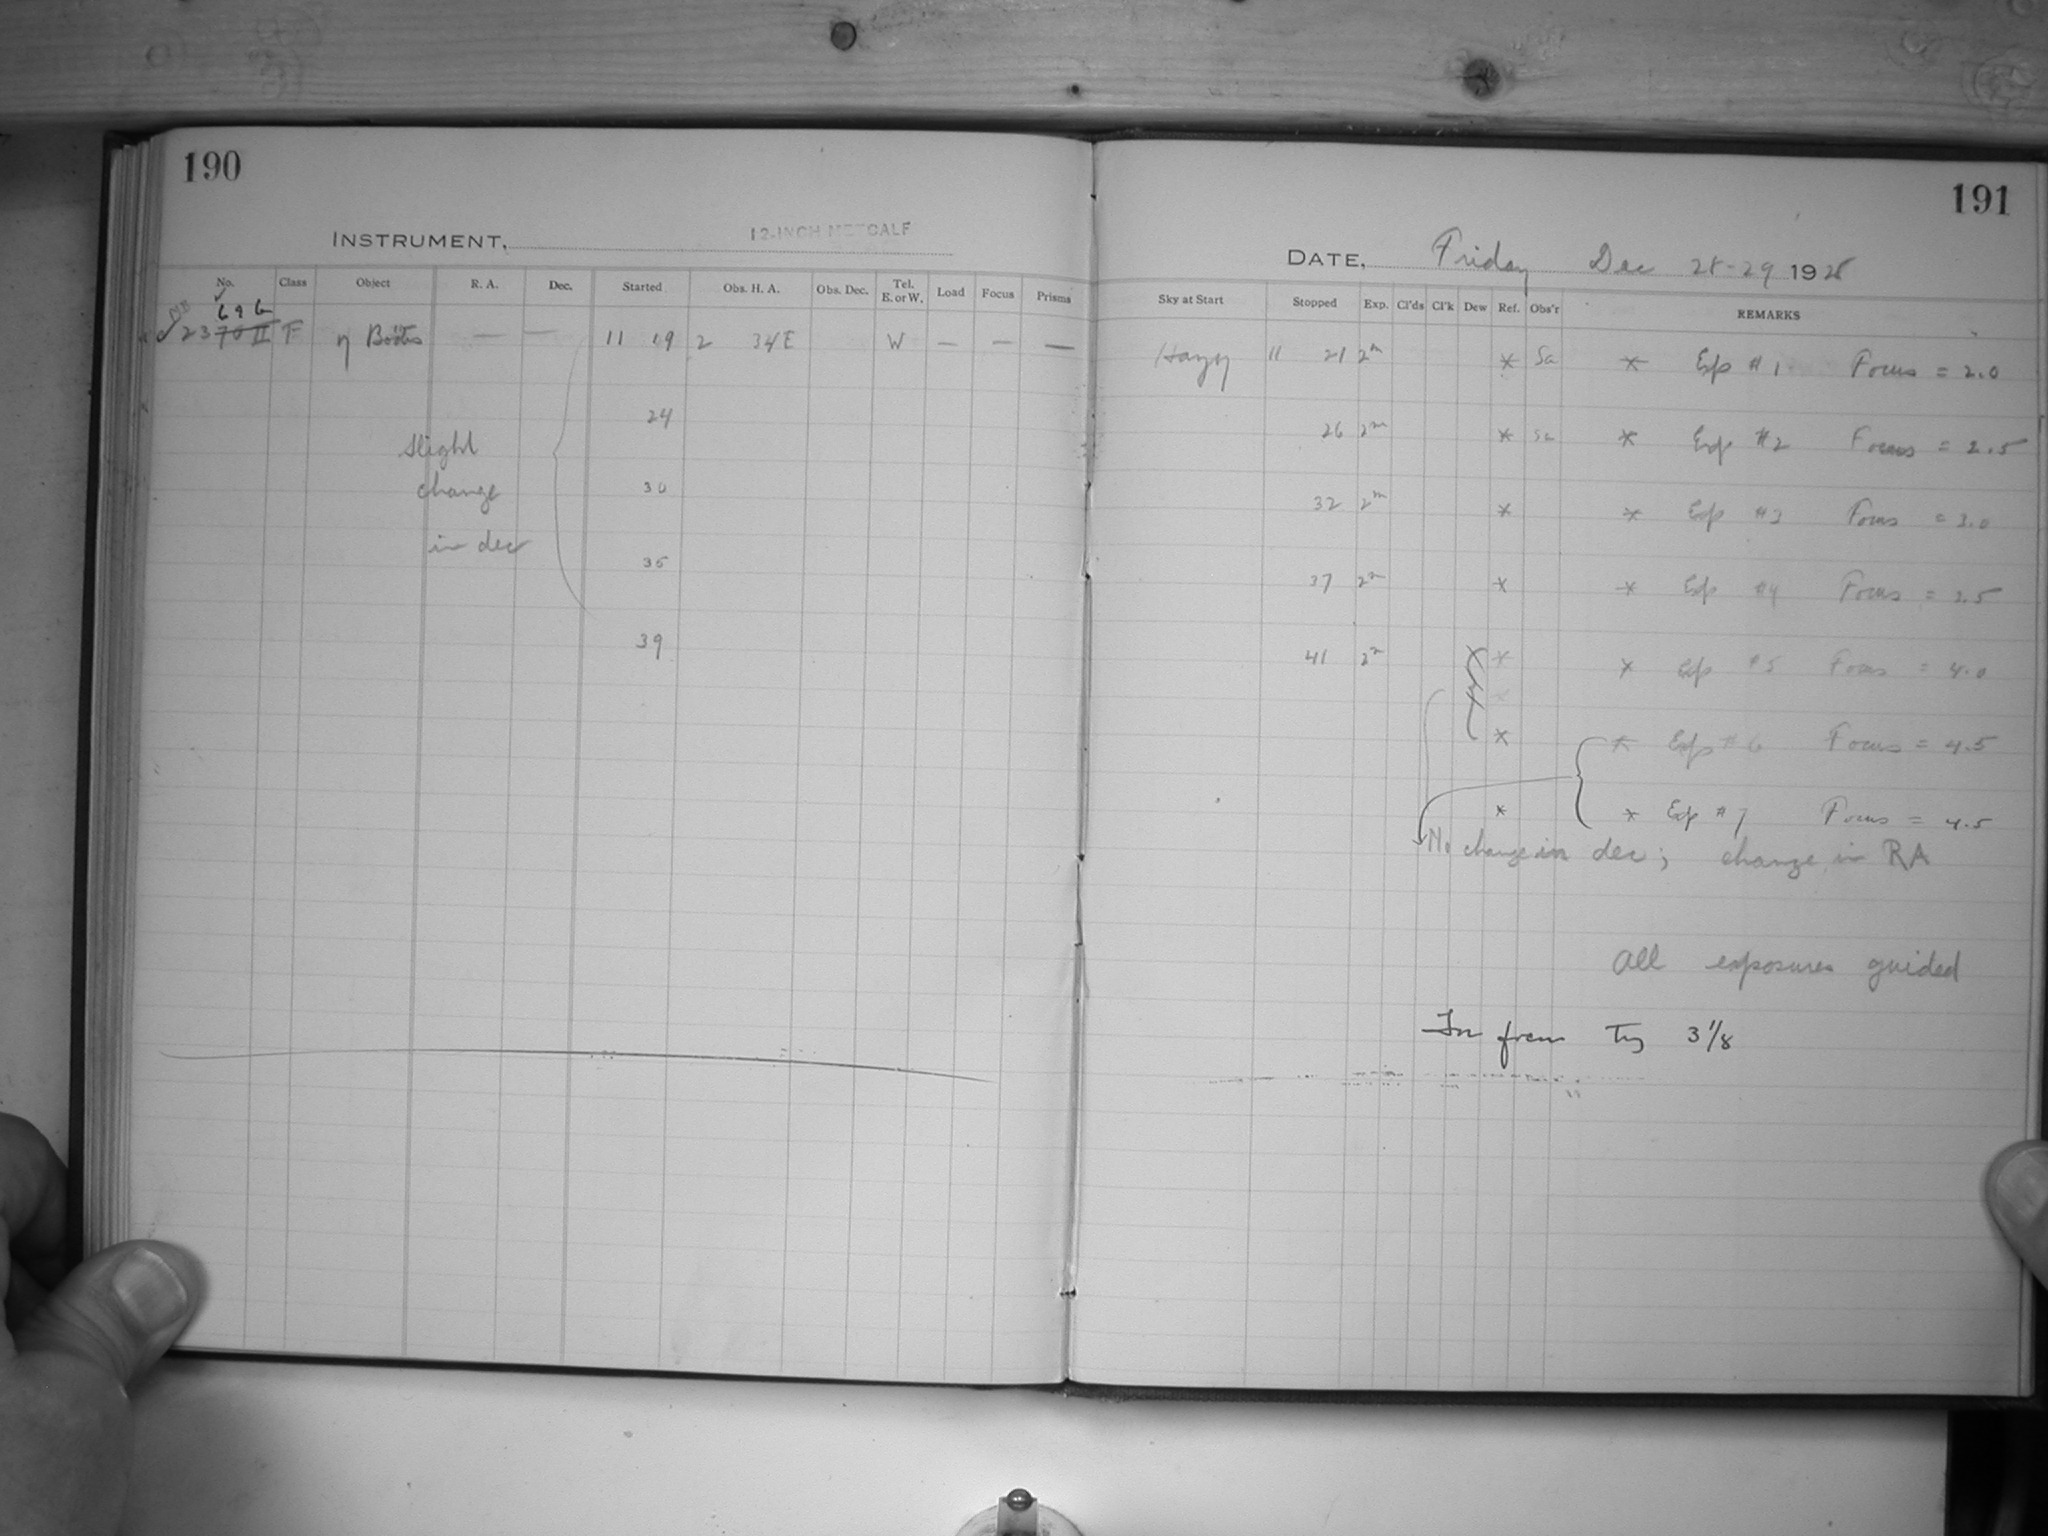 190
INSTRUMENT, 12-INCH METCALF
No. Class Object R. A. Dec. Started Obs. H. A. Obs. Dec. Tel. E. or W. Load Focus Prisms
696
2370 II F η Boötis — — 11 19 2 34 E W — — —
24
slight
change
30
in dec
35
39
191
DATE, Friday Dec 28-29 1928
Sky at Start Stopped Exp. Cl'ds Cl'k Dew Ref. Obs'r REMARKS
Hazy 11 21 2m * Sa * Exp #1 Focus = 2.0
26 2m * Sa * Exp #2 Focus = 2.5
32 2m * * Exp #3 Focus = 3.0
37 2m * * Exp #4 Focus = 3.5
41 2m * * Exp #5 Focus = 4.0
* * Exp #6 Focus = 4.5
* * Exp #7 Focus = 4.5
No change in dec; change in RA
All exposures guided
In from 3 1/8